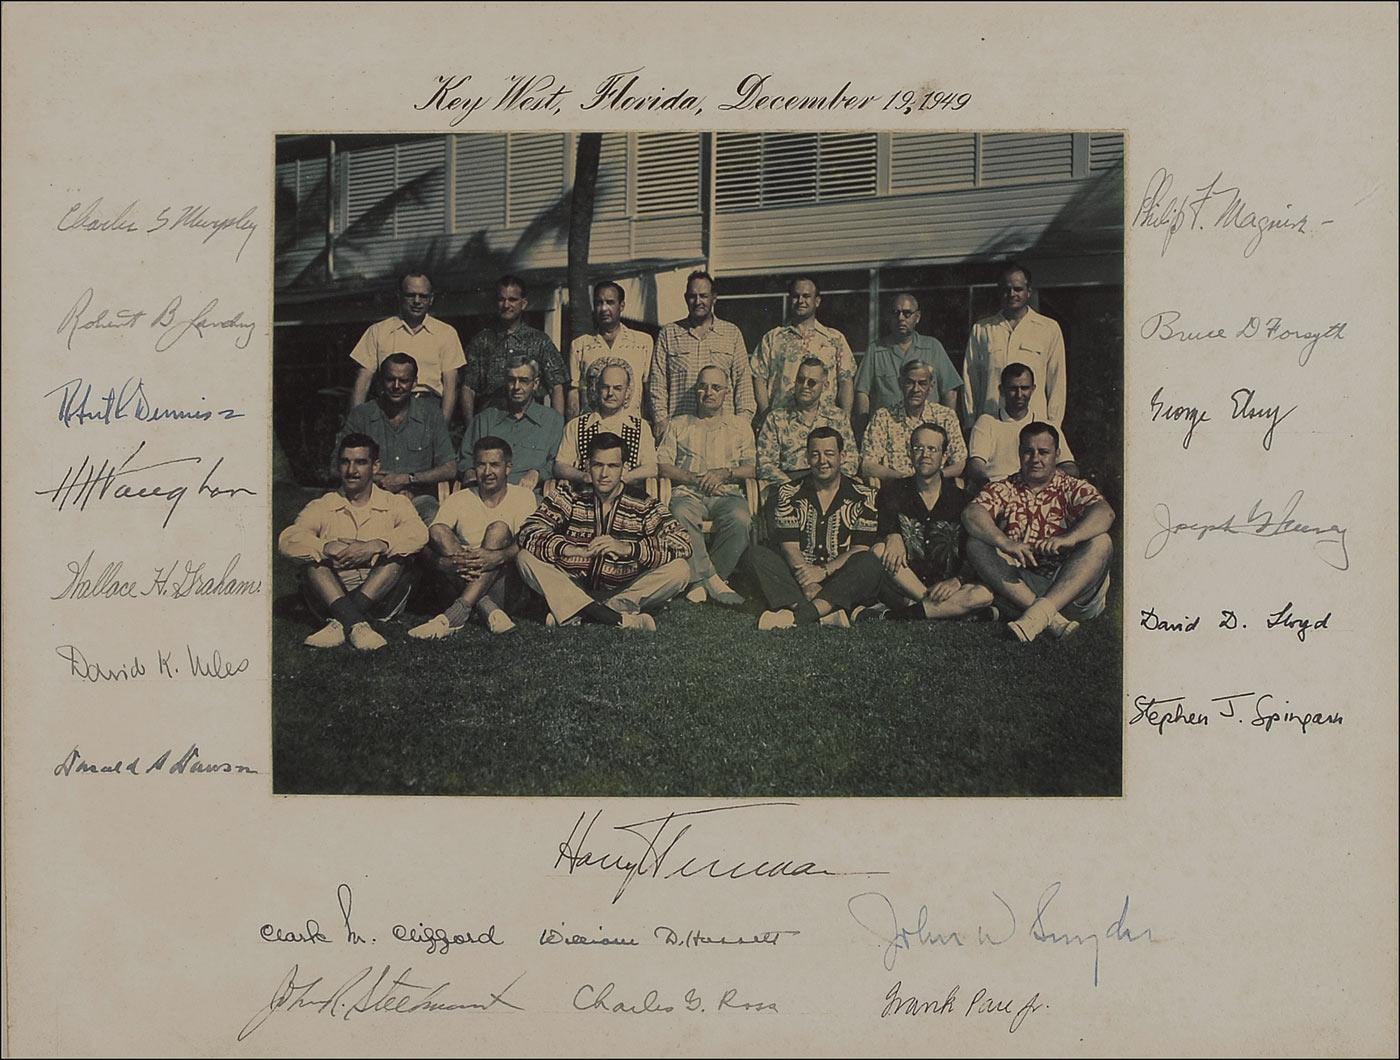 Key West, Florida, December 19, 1949
Charles S Murphy
Robert B Landry
Robert L Dennison
HHVaughan
Wallace H. Graham.
David K. Niles
Donald S Dawson
Philip F. Maguire
Bruce D Forsyth
George Elsey
Joseph G Feeney
David D. Lloyd
Stephen J. Spingarn
Harry Truman
Clark M. Clifford William D. Hassett John W Snyder
John R. Steelman Charles G. Ross Frank Pace Jr.